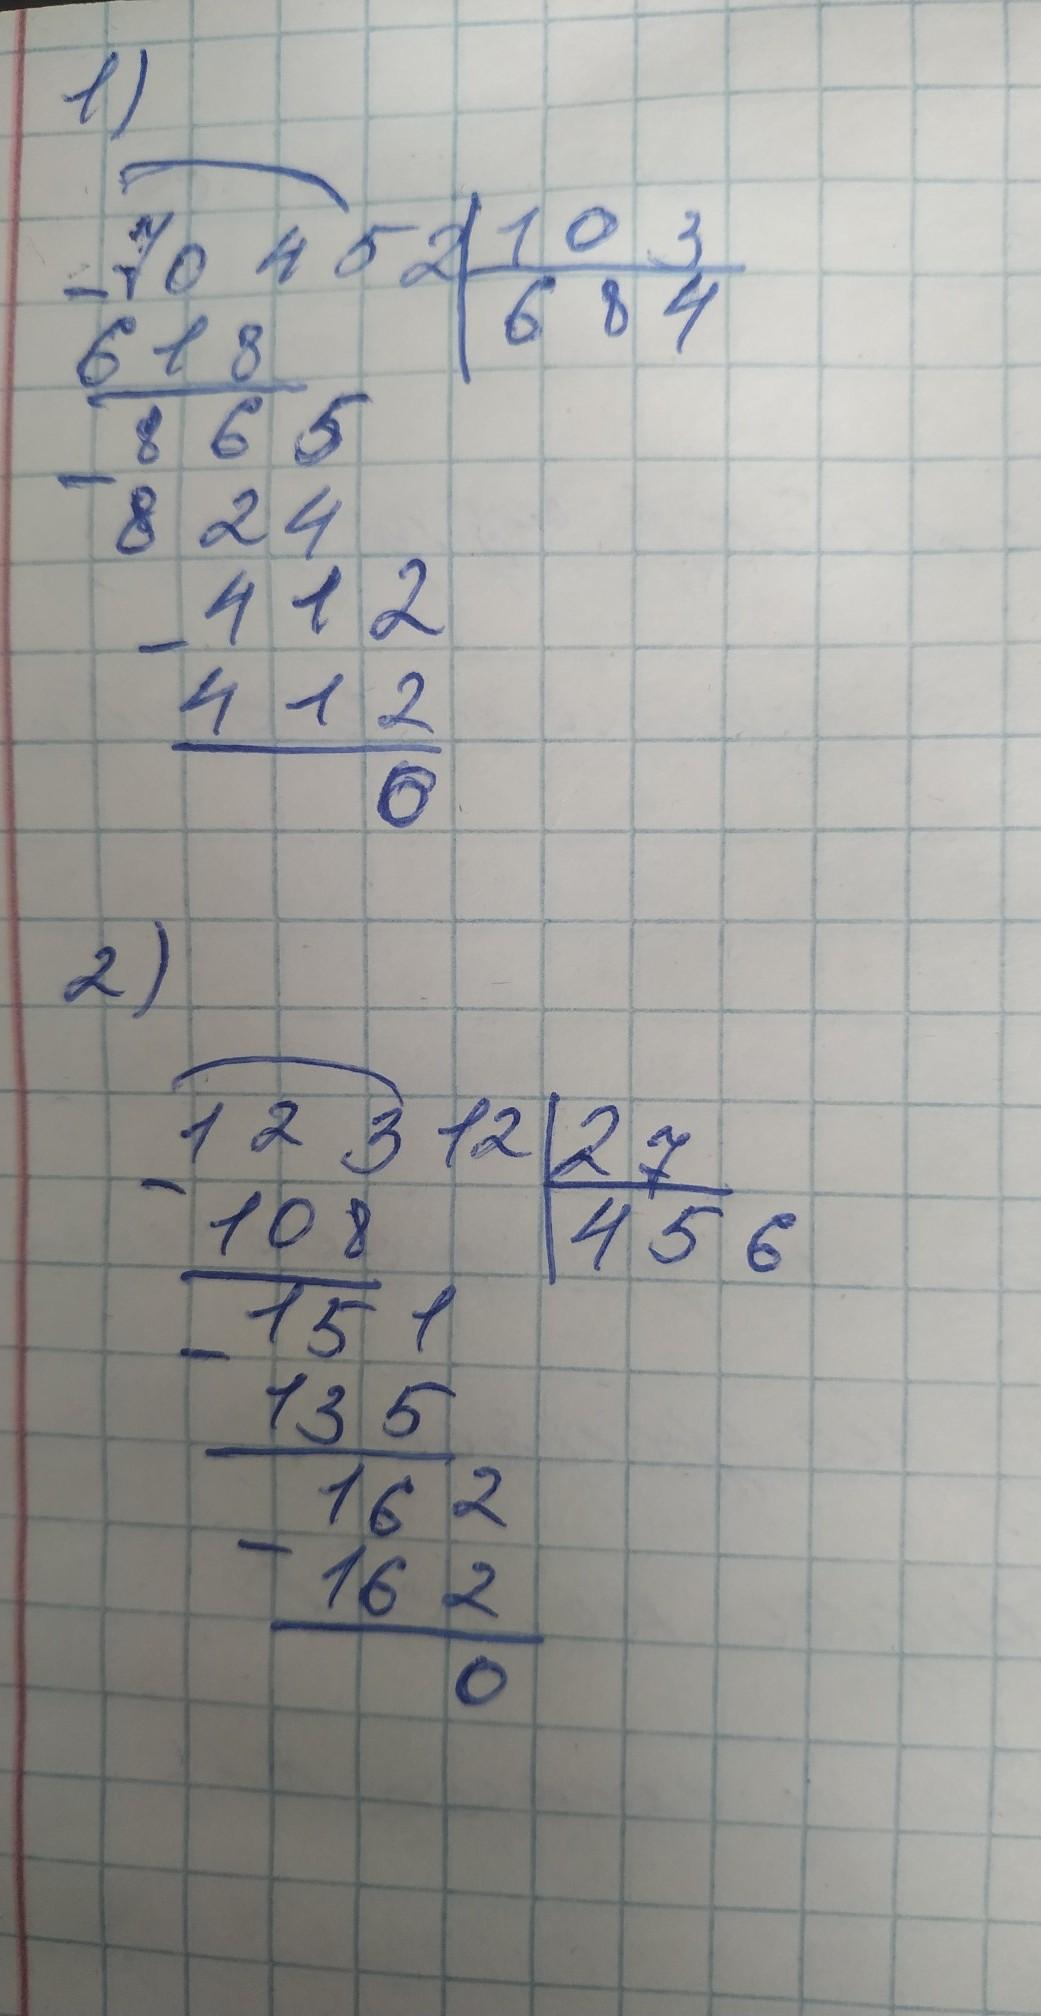 1)
70452 103
684
618
865
824
412
412
0
2)
12312 27
456
108
151
135
162
162
0